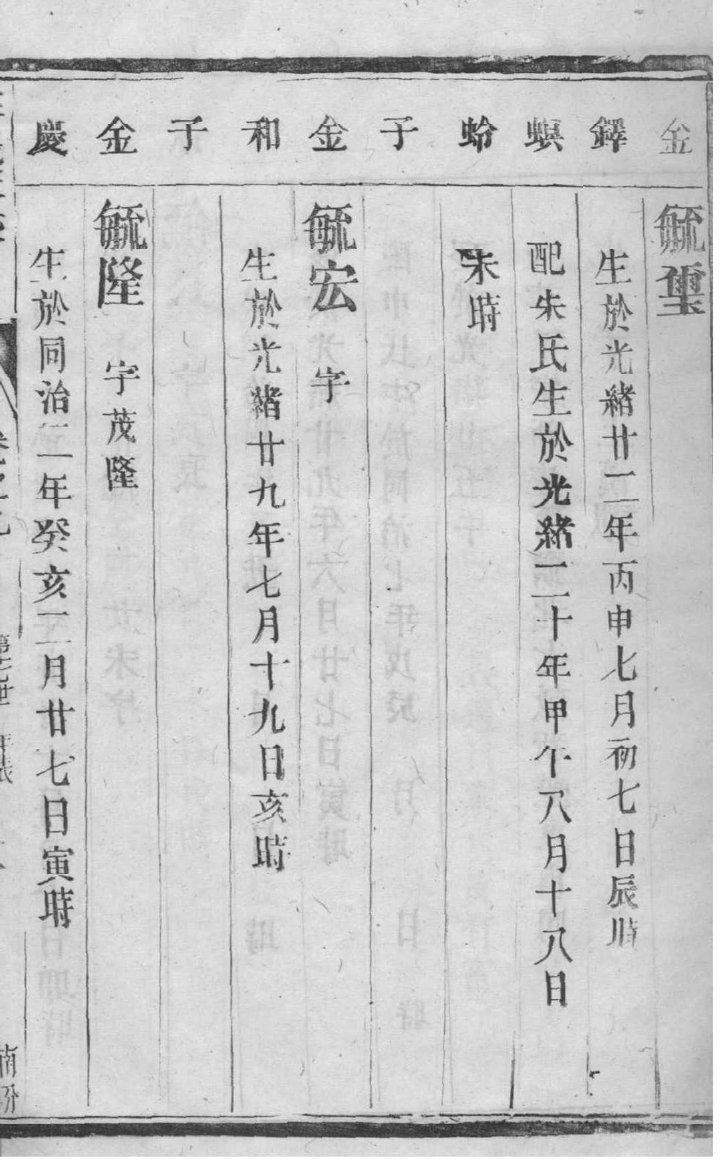 金 毓璽
鐸 生於光緒廿二年丙申七月初七日辰時
螟 配朱氏生於光緒二十年甲午八月十八日
蛉 未時
子
金 毓宏 字
和 生於光緒廿九年七月十九日亥時
子
金 毓隆 字茂隆
慶 生於同治二年癸亥二月廿七日寅時